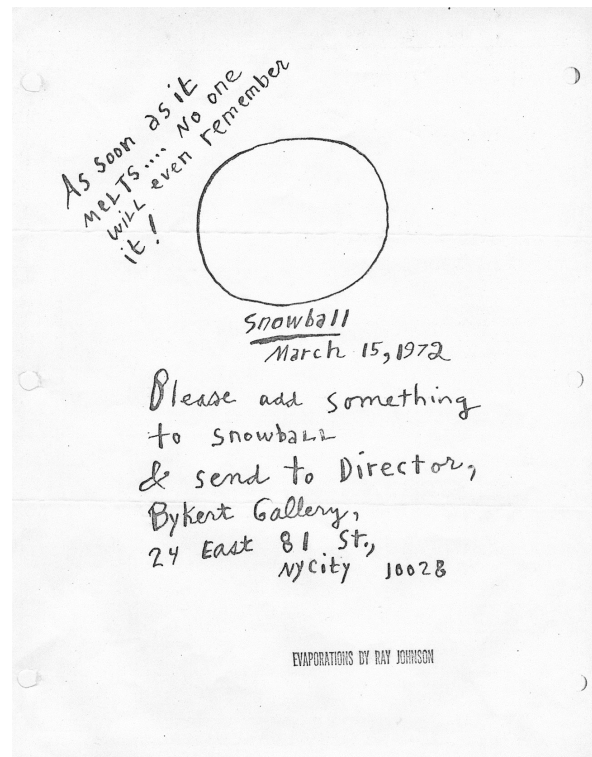 As soon as it
MeLTS.... No one
will even remember
it!
Snowball
March 15, 1972
Please add something
to snowball
& send to Director,
Bykert Gallery,
24 East 81 St.,
NyCity 10028
EVAPORATIONS BY RAY JOHNSON